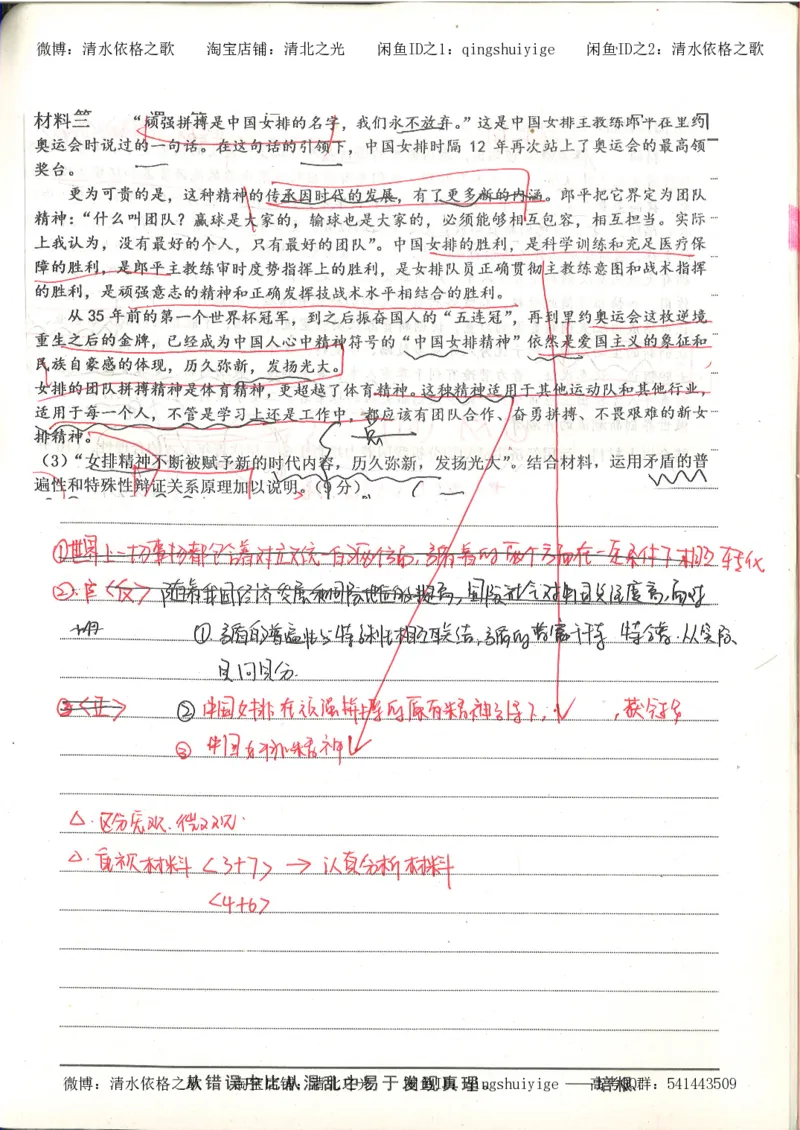 微博：清水依格之歌 淘宝店铺：清北之光 闲鱼ID之1：qingshuiyige 闲鱼ID之2：清水依格之歌
材料三 “顽强拼搏是中国女排的名字，我们永不放弃。”这是中国女排主教练郎平在里约
奥运会时说过的一句话。在这句话的引领下，中国女排时隔 12 年再次站上了奥运会的最高领
奖台。
更为可贵的是，这种精神的传承因时代的发展，有了更多新的内涵。郎平把它界定为团队
精神：“什么叫团队？赢球是大家的，输球也是大家的，必须能够相互包容，相互担当。实际
上我认为，没有最好的个人，只有最好的团队”。中国女排的胜利，是科学训练和充足医疗保
障的胜利，是郎平主教练审时度势指挥上的胜利，是女排队员正确贯彻主教练意图和战术指挥
的胜利，是顽强意志的精神和正确发挥技战术水平相结合的胜利。
从 35 年前的第一个世界杯冠军，到之后振奋国人的“五连冠”，再到里约奥运会这枚逆境
重生之后的金牌，已经成为中国人心中精神符号的“中国女排精神”依然是爱国主义的象征和
民族自豪感的体现，历久弥新，发扬光大。
女排的团队拼搏精神是体育精神，更超越了体育精神。这种精神适用于其他运动队和其他行业，
适用于每一个人，不管是学习上还是工作中，都应该有团队合作、奋勇拼搏、不畏艰难的新女
排精神。
（3）“女排精神不断被赋予新的时代内容，历久弥新，发扬光大”。结合材料，运用矛盾的普
遍性和特殊性辩证关系原理加以说明。（9 分）
①世界上一切事物都包含着对立统一的两个方面，矛盾着的两个方面在一定条件下相互转化
②. <反> 随着我国经济发展和国际地位的提高，
①.矛盾的普遍性与特殊性相互联结，
具问具分.
③<正> ②中国女排在顽强拼搏的原有精神引导下， ，获冠军
③ 中国女排精神
△. 区分宏观. 微观
△. 重视材料 <3+7> → 认真分析材料
<4+6>
微博：清水依格之歌 从错误中比从混乱中易于发现真理。qingshuiyige ——培根 QQ群：541443509